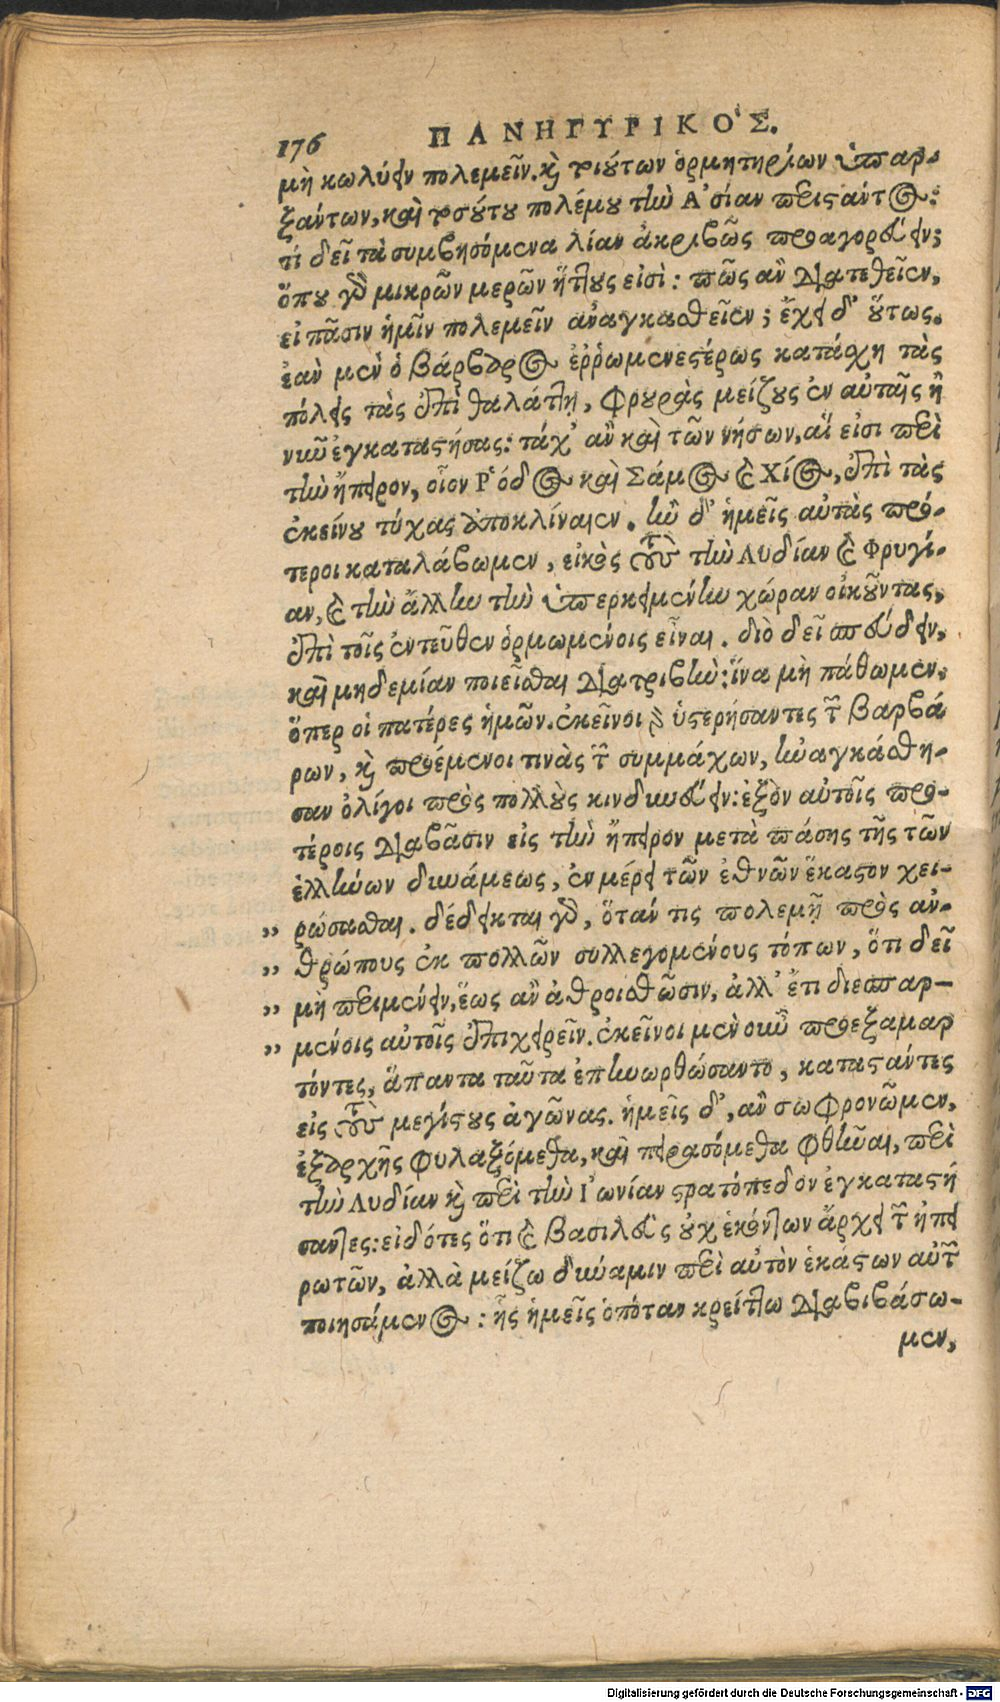 176 ΠΑΝΗΓΥΡΙΚΟ῾Σ.
μὴ κωλύειν πολεμεῖν. καὶ τοιούτων ὁρμητηρίων ὑπαρ-
ξάντων, καὶ τοσούτου πολέμου τὴν Ἀσίαν περιστάντος:
τί δεῖ τὰ συμβησόμενα λίαν ἀκριβῶς προαγορεύειν;
ὅπου γὰρ μικρῶν μερῶν ἥττους εἰσὶ: πῶς ἂν διατεθεῖεν,
εἰ πᾶσιν ἡμῖν πολεμεῖν ἀναγκασθεῖεν; ἔχει δ' οὕτως.
ἐὰν μὲν ὁ βάρβαρος ἐῤῥωμενεστέρως κατάσχῃ τὰς
πόλεις τὰς ἐπὶ θαλάττῃ, φρουρὰς μείζους ἐν αὐταῖς ἢ
νῦν ἐγκαταστήσας: τάχ' ἂν καὶ τῶν νήσων, αἵ εἰσι περὶ
τὴν ἤπειρον, οἷον Ῥόδος καὶ Σάμος καὶ Χίος, ἐπὶ τὰς
ἐκείνου τύχας ἀποκλίναιεν. ἢν δ' ἡμεῖς αὐτὰς πρό-
τεροι καταλάβωμεν, εἰκὸς τοὺς τὴν Λυδίαν καὶ Φρυγί-
αν, καὶ τὴν ἄλλην τὴν ὑπερκειμένην χώραν οἰκοῦντας,
ἐπὶ τοῖς ἐντεῦθεν ὁρμωμένοις εἶναι. διὸ δεῖ σπεύδειν,
καὶ μηδεμίαν ποιεῖσθαι διατριβὴν: ἵνα μὴ πάθωμεν,
ὅπερ οἱ πατέρες ἡμῶν. ἐκεῖνοι γὰρ ὑστερήσαντες τῶν βαρβά
ρων, καὶ προέμενοι τινὰς τῶν συμμάχων, ἠναγκάσθη-
σαν ὀλίγοι πρὸς πολλοὺς κινδυνεύειν: ἐξὸν αὐτοῖς προ-
τέροις διαβᾶσιν εἰς τὴν ἤπειρον μετὰ πάσης τῆς τῶν
ἑλλήνων δυνάμεως, ἐν μέρει τῶν ἐθνῶν ἕκαστον χει-
„ ρώσασθαι. δέδεικται γὰρ, ὅταν τις πολεμῇ πρὸς ἀν-
„ θρώπους ἐκ πολλῶν συλλεγομένους τόπων, ὅτι δεῖ
„ μὴ περιμένειν, ἕως ἂν ἀθροισθῶσιν, ἀλλ' ἔτι διεσπαρ-
„ μένοις αὐτοῖς ἐπιχειρεῖν. ἐκεῖνοι μὲν οὖν προεξαμαρ
τόντες, ἅπαντα ταῦτα ἐπηνωρθώσαντο, καταστάντες
εἰς τοὺς μεγίστους ἀγῶνας. ἡμεῖς δ', ἂν σωφρονῶμεν,
ἐξαρχῆς φυλαξόμεθα, καὶ πειρασόμεθα φθῆναι, περὶ
τὴν Λυδίαν καὶ περὶ τὴν Ἰωνίαν στρατόπεδον ἐγκαταστή
σαντες: εἰδότες ὅτι καὶ βασιλεὺς οὐχ ἑκόντων ἄρχει τῶν ἠπει
ρωτῶν, ἀλλὰ μείζω δύναμιν περὶ αὐτὸν ἑκάστων αὐτῶν
ποιησάμενος: ἧς ἡμεῖς ὁπόταν κρείττω διαβιβάσω-
μεν,
Digitalisierung gefördert durch die Deutsche Forschungsgemeinschaft - DFG